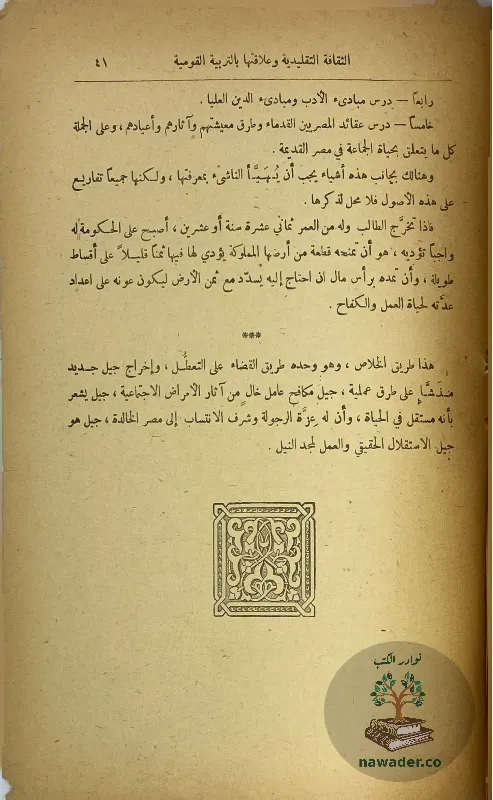 الثقافة التقليدية وعلاقتها بالتربية القومية ٤١
رابعاً — درس مبادىء الأدب ومبادىء الدين العليا .
خامساً — درس عقائد المصريين القدماء وطرق معيشتهم وآثارهم وأعيادهم، وعلى الجملة
كل ما يتعلق بحياة الجماعة في مصر القديمة .
وهنالك بجانب هذه أشياء يجب أن يُهَيَّأ الناشىء بمعرفتها ، ولكنها جميعاً تفاريع
على هذه الأصول فلا محل لذكرها .
فاذا تخرَّج الطالب وله من العمر ثماني عشرة سنة أو عشرين ، أصبح على الحكومة له
واجباً تؤديه ، هو أن تمنحه قطعة من أرضها المملوكة يؤدي لها فيها ثمناً قليلاً على أقساط
طويلة ، وأن تمده برأس مال ان احتاج إليه يسدّد مع ثمن الأرض ليكون عونه على اعداد
عدَّته لحياة العمل والكفاح .
***
هذا طريق الخلاص ، وهو وحده طريق القضاء على التعطُّل ، وإخراج جيل جديد
منشَّإٍ على طرق عملية ، جيل مكافح عامل خالٍ من آثار الامراض الاجتماعية ، جيل يشعر
بأنه مستقل في الحياة ، وأن له عزَّة الرجولة وشرف الانتساب إلى مصر الخالدة ، جيل هو
جيل الاستقلال الحقيقي والعمل لمجد النيل .
نوادر الكتب
nawader.co